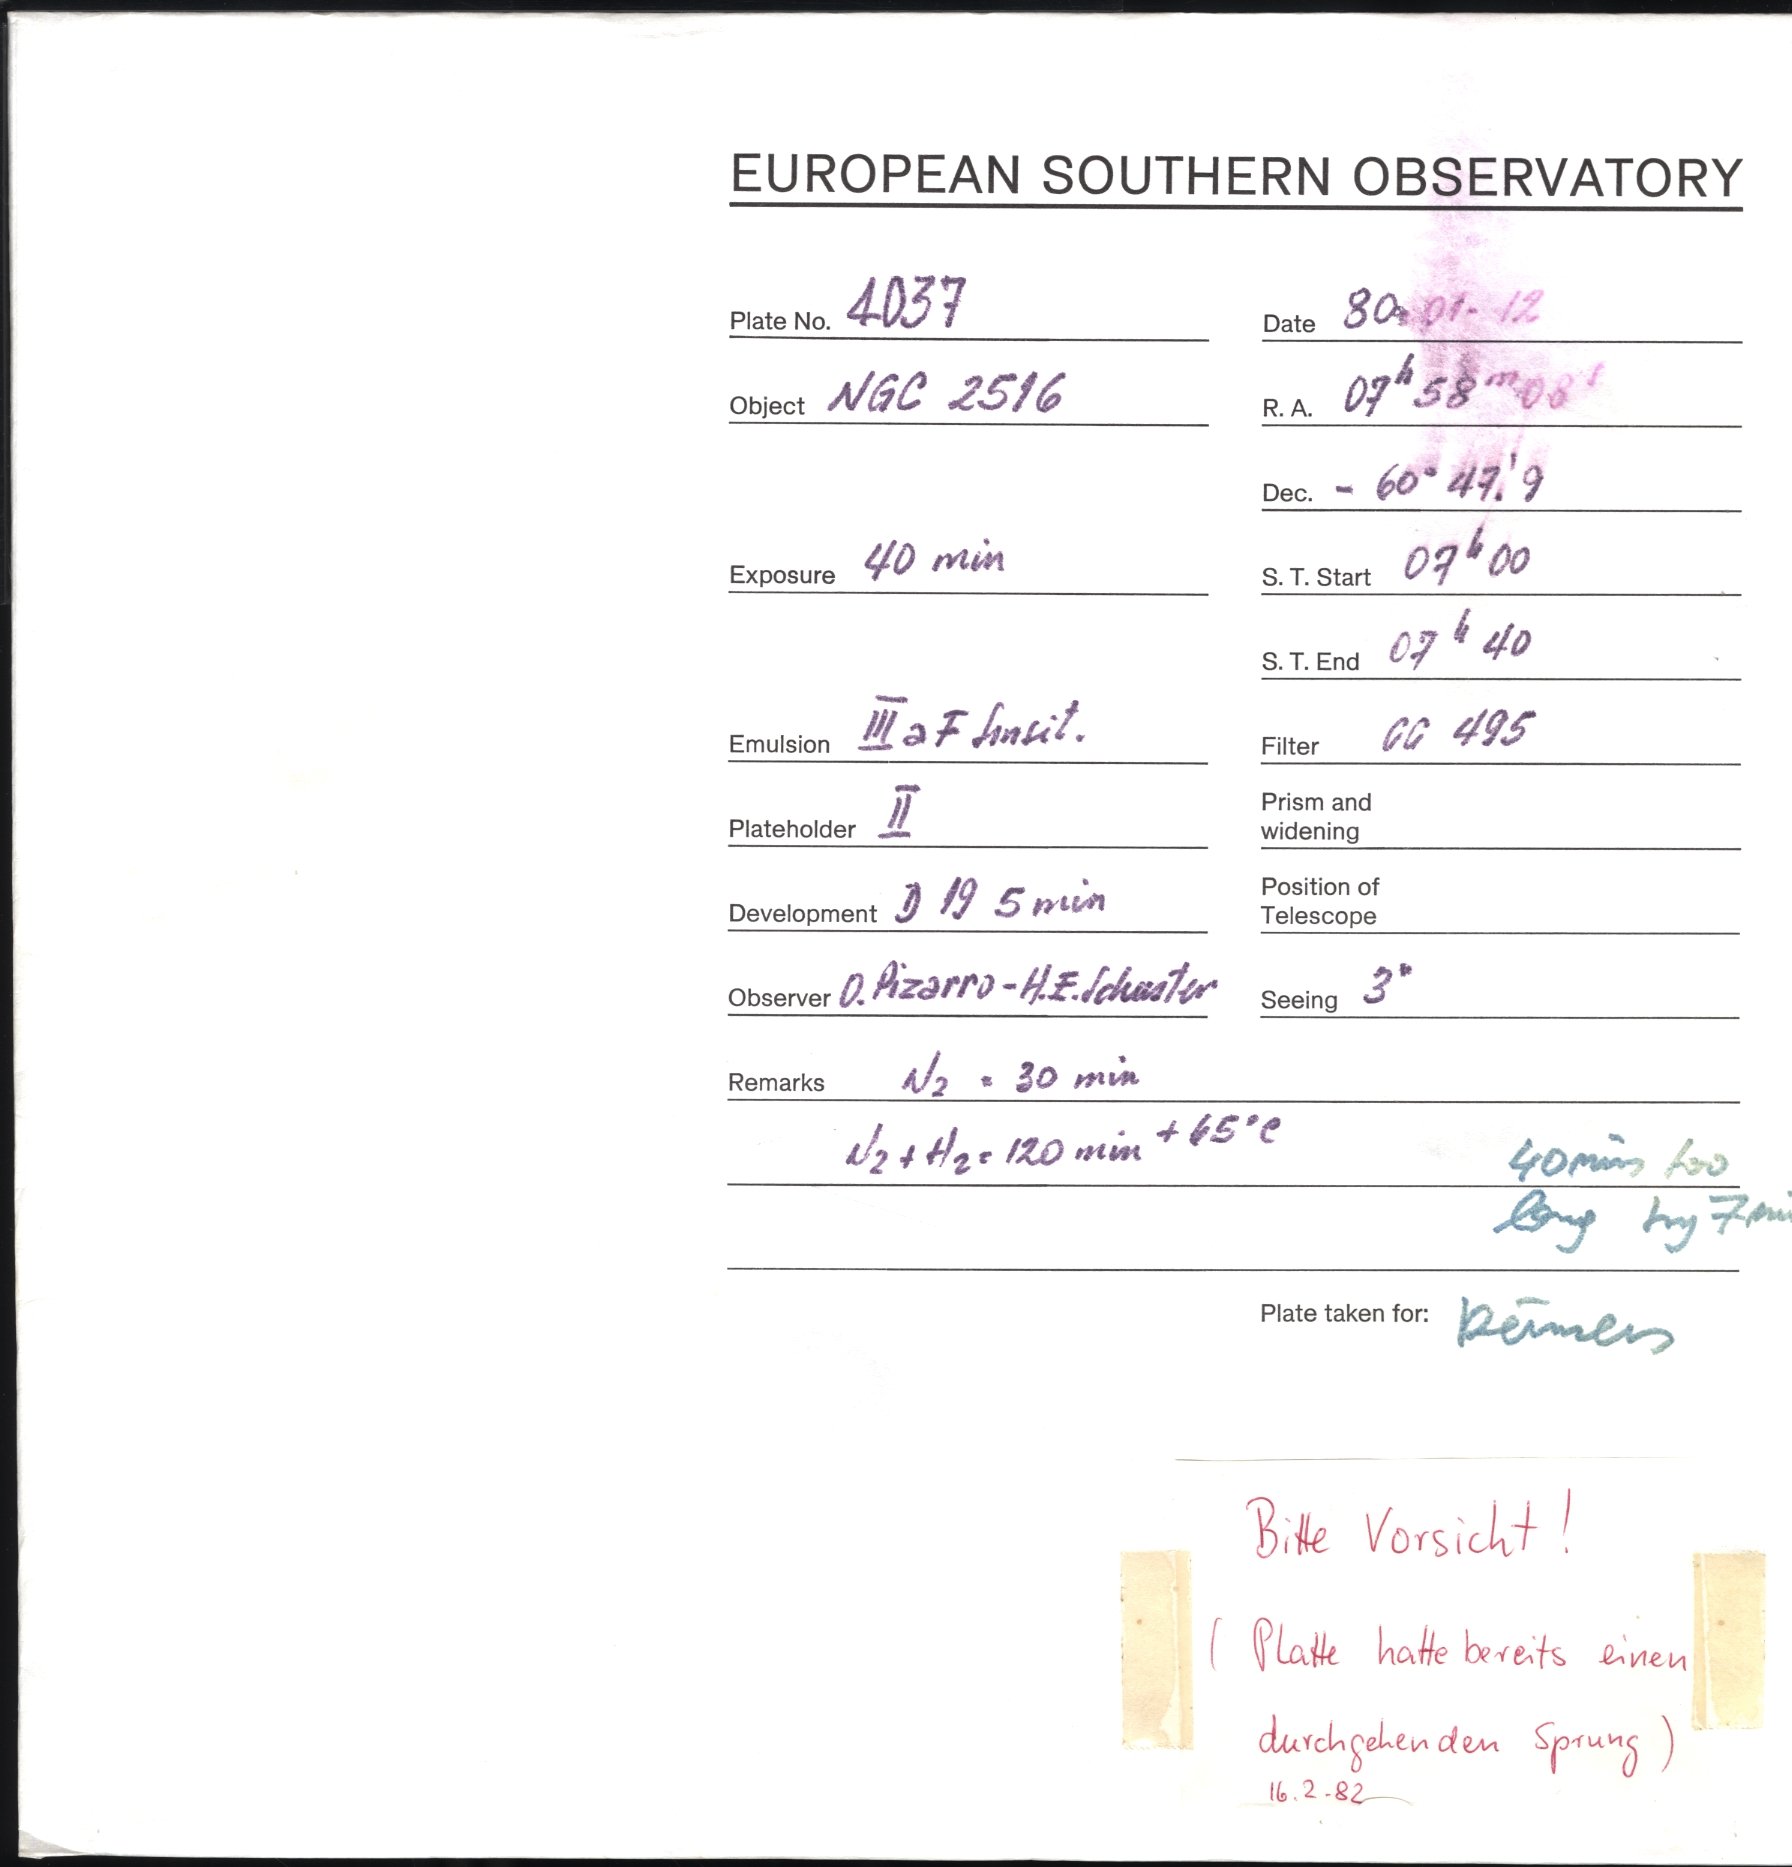 EUROPEAN SOUTHERN OBSERVATORY
Plate No. 4037
Date 80-01-12
Object NGC 2516
R. A. 07h 58m 08s
Dec. - 60° 47.'9
Exposure 40 min
S. T. Start 07h 00
S. T. End 07h 40
Emulsion III a F sensit.
Filter GG 495
Plateholder II
Prism and
widening
Development D 19 5 min
Position of
Telescope
Observer O. Pizarro - H.E. Schuster
Seeing 3"
Remarks N2 = 30 min
N2 + H2 = 120 min + 65°C
40 mins too
long by 7 min
Plate taken for:
Bitte Vorsicht!
( Platte hatte bereits einen
durchgehenden Sprung )
16.2.-82